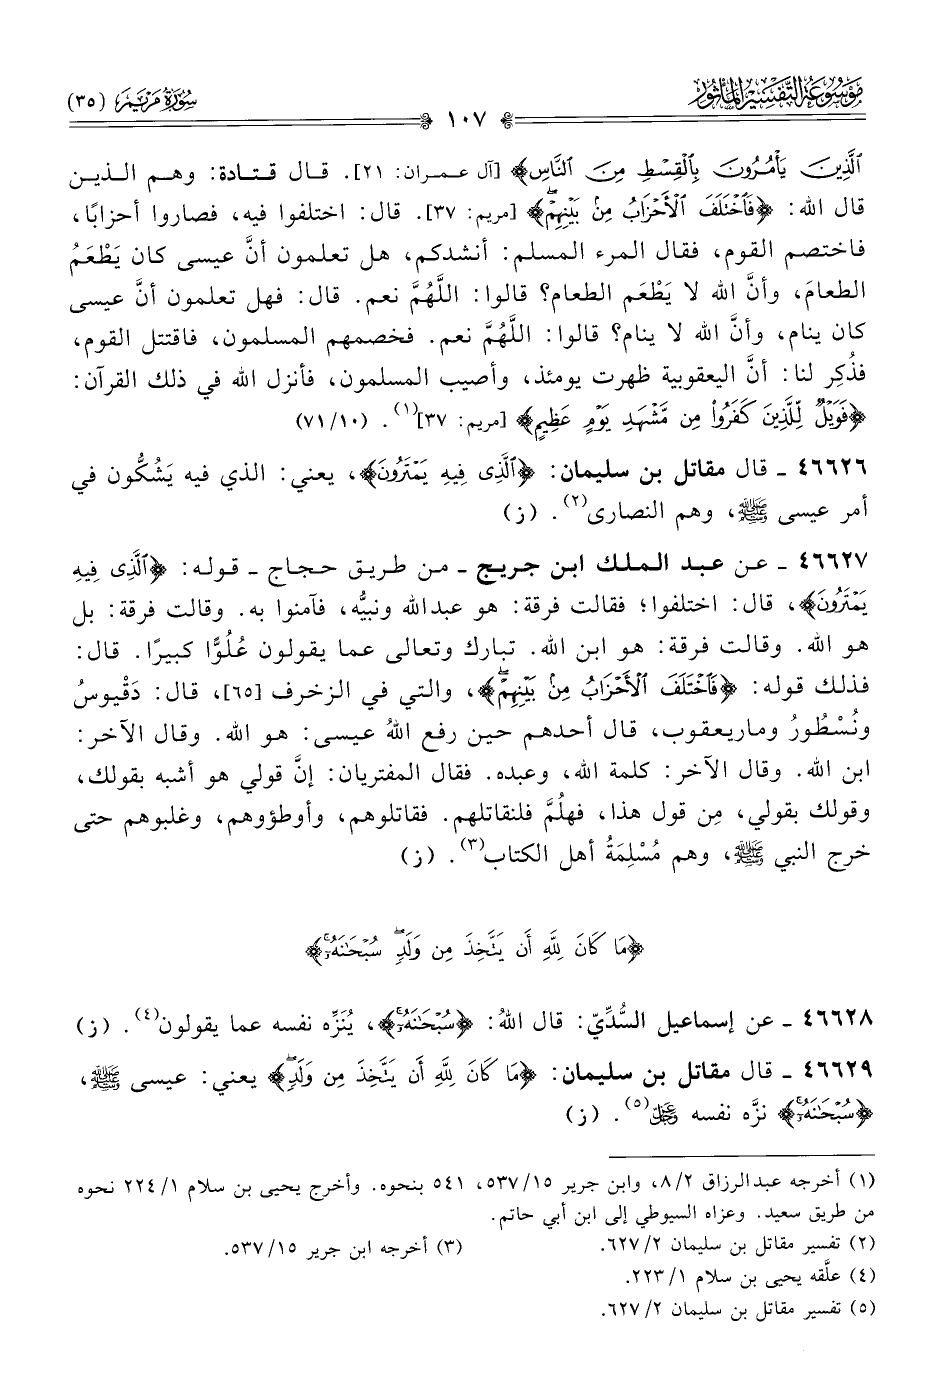 مَوْسُوعَةُ التَّفْسِيرِ المَأْثُور
١٠٧
سُورَةُ مَرْيَمَ (٣٥)
الَّذِينَ يَأْمُرُونَ بِالْقِسْطِ مِنَ النَّاسِ﴾ [آل عمران: ٢١]. قال قتادة: وهم الذين
قال الله: ﴿فَاخْتَلَفَ الْأَحْزَابُ مِنْ بَيْنِهِمْ﴾ [مريم: ٣٧]. قال: اختلفوا فيه، فصاروا أحزابًا،
فاختصم القوم، فقال المرء المسلم: أنشدكم، هل تعلمون أنَّ عيسى كان يَطْعَمُ
الطعامَ، وأنَّ الله لا يَطْعَم الطعام؟ قالوا: اللَّهُمَّ نعم. قال: فهل تعلمون أنَّ عيسى
كان ينام، وأنَّ الله لا ينام؟ قالوا: اللَّهُمَّ نعم. فخصمهم المسلمون، فاقتتل القوم،
فذُكِر لنا: أنَّ اليعقوبية ظهرت يومئذ، وأصيب المسلمون، فأنزل الله في ذلك القرآن:
﴿فَوَيْلٌ لِّلَّذِينَ كَفَرُوا مِن مَّشْهَدِ يَوْمٍ عَظِيمٍ﴾ [مريم: ٣٧](١). (١٠/٧١)
٤٦٦٢٦ ـ قال مقاتل بن سليمان: ﴿الَّذِي فِيهِ يَمْتَرُونَ﴾، يعني: الذي فيه يَشُكُّون في
أمر عيسى ﷺ، وهم النصارى(٢). (ز)
٤٦٦٢٧ ـ عن عبد الملك ابن جريج ـ من طريق حجاج ـ قوله: ﴿الَّذِي فِيهِ
يَمْتَرُونَ﴾، قال: اختلفوا؛ فقالت فرقة: هو عبدالله ونبيُّه، فآمنوا به. وقالت فرقة: بل
هو الله. وقالت فرقة: هو ابن الله. تبارك وتعالى عما يقولون عُلُوًّا كبيرًا. قال:
فذلك قوله: ﴿فَاخْتَلَفَ الْأَحْزَابُ مِنْ بَيْنِهِمْ﴾، والتي في الزخرف [٦٥]، قال: دَقْيوسُ
ونُسْطُورُ ومار‌يعقوب، قال أحدهم حين رفع اللهُ عيسى: هو الله. وقال الآخر:
ابن الله. وقال الآخر: كلمة الله، وعبده. فقال المفتريان: إنَّ قولي هو أشبه بقولك،
وقولك بقولي، مِن قول هذا، فهلُمَّ فلنقاتلهم. فقاتلوهم، وأوطؤوهم، وغلبوهم حتى
خرج النبي ﷺ، وهم مُسْلِمَةُ أهل الكتاب(٣). (ز)
﴿مَا كَانَ لِلَّهِ أَن يَتَّخِذَ مِن وَلَدٍ سُبْحَانَهُ﴾
٤٦٦٢٨ ـ عن إسماعيل السُّدِّيّ: قال اللهُ: ﴿سُبْحَانَهُ﴾، يُنَزِّه نفسه عما يقولون(٤). (ز)
٤٦٦٢٩ ـ قال مقاتل بن سليمان: ﴿مَا كَانَ لِلَّهِ أَن يَتَّخِذَ مِن وَلَدٍ﴾ يعني: عيسى ﷺ،
﴿سُبْحَانَهُ﴾ نزَّه نفسه ﷻ(٥). (ز)
(١) أخرجه عبدالرزاق ٨/٢، وابن جرير ٥٣٧/١٥، ٥٤١ بنحوه. وأخرج يحيى بن سلام ٢٢٤/١ نحوه
من طريق سعيد. وعزاه السيوطي إلى ابن أبي حاتم.
(٢) تفسير مقاتل بن سليمان ٦٢٧/٢.
(٣) أخرجه ابن جرير ٥٣٧/١٥.
(٤) علَّقه يحيى بن سلام ٢٢٣/١.
(٥) تفسير مقاتل بن سليمان ٦٢٧/٢.